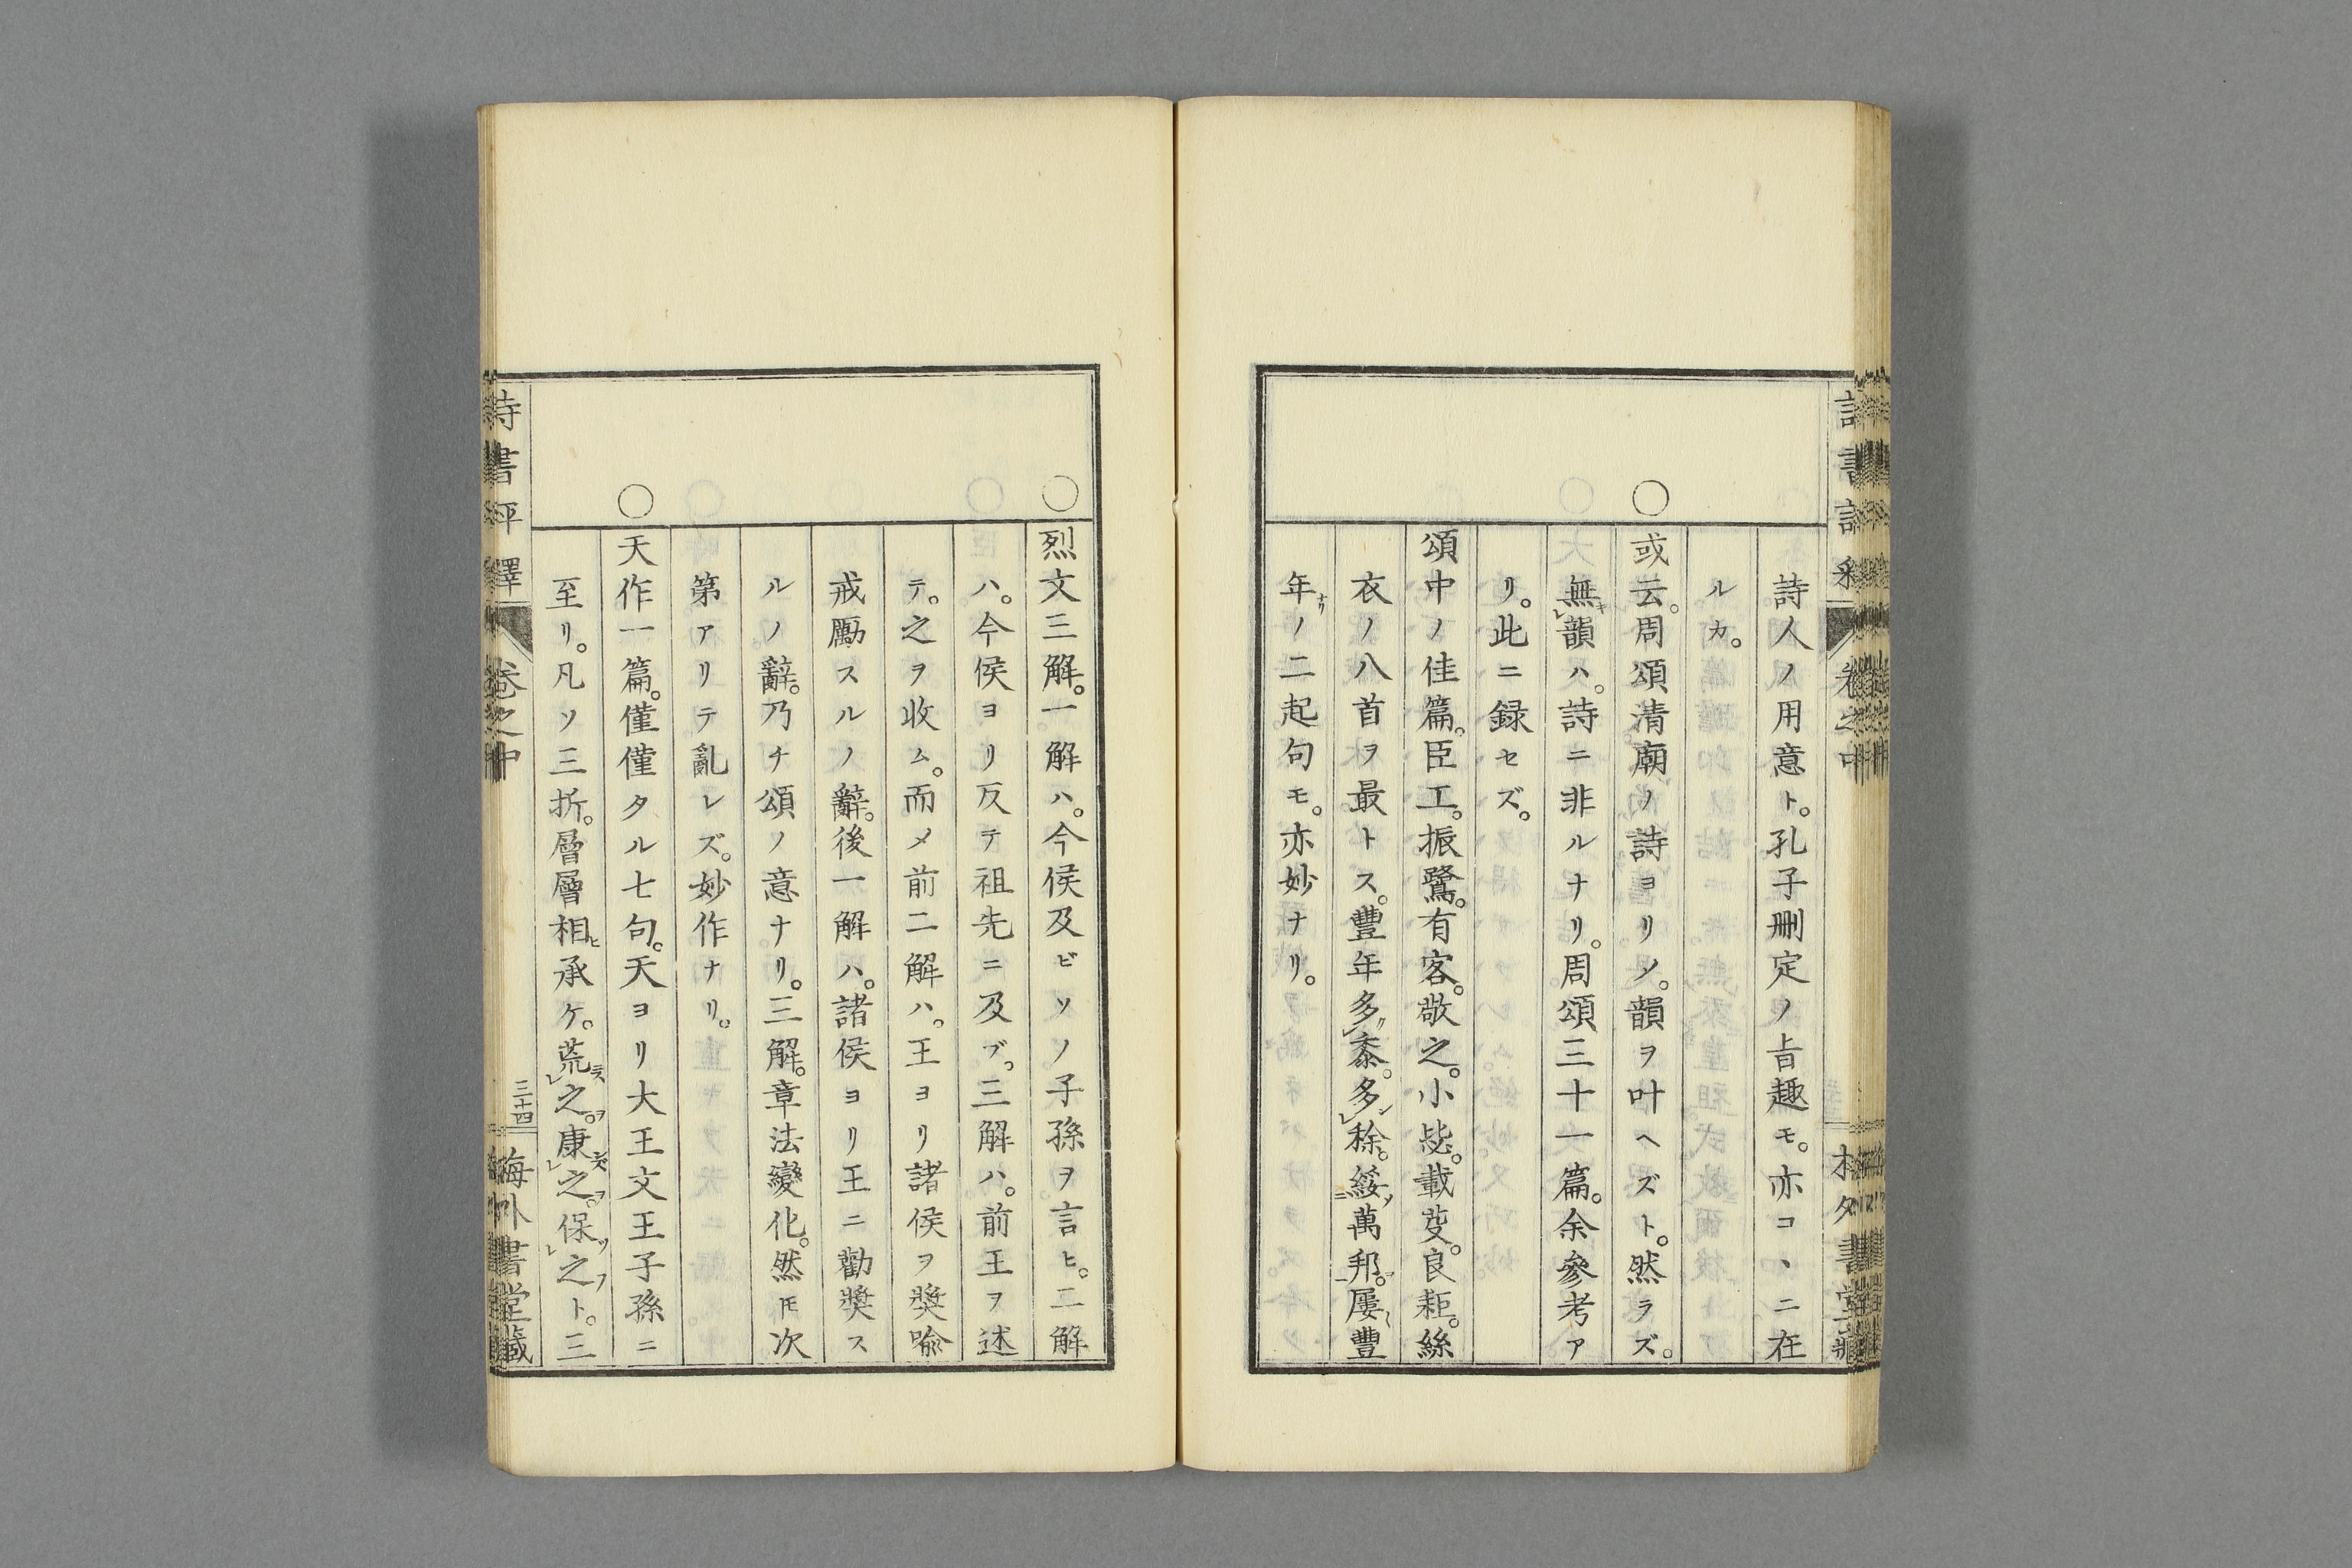 詩人ノ用意ト。孔子刪定ノ㫖趣モ。亦コヽニ在
ルカ。
○
或云。周頌淸廟ノ詩ヨリ〆。韻ヲ叶ヘズト。然ラズ。
無キレ韻ハ。詩ニ非ルナリ。周頌三十一篇。余參考ア
リ。此ニ録セズ。
頌中ノ佳篇。臣工。振鷺。有客。敬之。小毖。載芟。良耜。絲
衣ノ八首ヲ最トス。豐年多レ黍。多レ稌。綏二萬邦一。屢豐
年ナリノ二起句モ。亦妙ナリ。
○
烈文三解。一解ハ。今侯及ビソノ子孫ヲ言ヒ。二解
ハ。今侯ヨリ反テ祖先ニ及ブ。三解ハ。前王ヲ述
テ。之ヲ收ム。而〆前二解ハ。王ヨリ諸侯ヲ獎喩
戒勵スルノ辭。後一解ハ。諸侯ヨリ王ニ勸獎ス
ルノ辭。乃チ頌ノ意ナリ。三解。章法變化。然𪜈次
第アリテ亂レズ。妙作ナリ。
○
天作一篇。僅僅タル七句。天ヨリ大王文王子孫ニ
至リ。凡ソ三折。層層相ヒ承ケ。荒レ之ヲ。康レ之ヲ。保レ之ト。三
詩書評釋 卷之中 三十四 梅外書堂藏